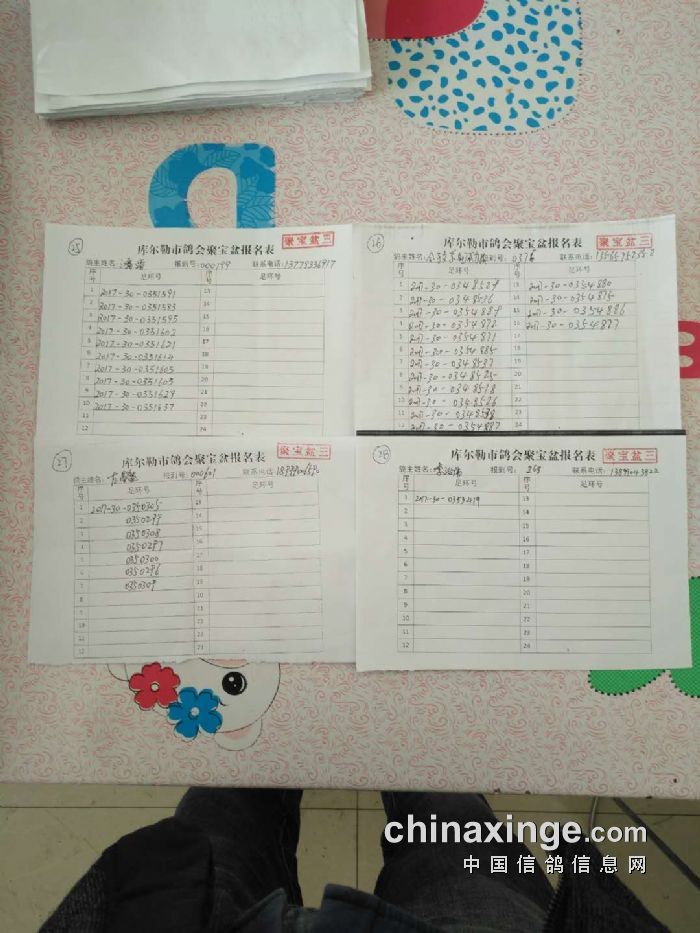 25
库尔勒市鸽会聚宝盆报名表
聚宝盆三
鸽主姓名: 报到号:000199 联系电话:13779336917
序号 足环号 序号 足环号
1 2017-30-0351591 13
2 2017-30-0351583
3 2017-30-0351595
4 2017-30-0351602 16
5 2017-30-0351621 17
6 2017-30-0351614 18
7 2017-30-0351605 19
8 2017-30-0351609 20
9 2017-30-0351629 21
10 2017-30-0351637 22
11 23
12 24
26
库尔勒市鸽会聚宝盆报名表
聚宝盆三
鸽主姓名: 报到号:0376 联系电话:
序号 足环号 序号 足环号
1 2017-30-0348529 13 2017-30-0354880
2 2017-30-0348526 14 2017-30-0354875
3 15 2017-30-0354886
4 2017-30-0354878 16 2017-30-0354877
5 2017-30-0354871
6 2017-30-0354885
7 2017-30-0348537
8
9 2017-30-0348518
10 2017-30-0348526
11 2017-30-0348538
12 2017-30-0354887 24
27
库尔勒市鸽会聚宝盆报名表
聚宝盆三
鸽主姓名: 报到号: 联系电话:
序号 足环号 序号 足环号
1 2017-30-0350305 13
2 0350295 14
3 0350308 15
4 0350297 16
5 0350300 17
6 0350296 18
7 0350309 19
8 20
9 21
10 22
11 23
12 24
28
库尔勒市鸽会聚宝盆报名表
聚宝盆三
鸽主姓名: 报到号: 368 联系电话:
序号 足环号 序号 足环号
1 2017-30-0353419 13
2 14
3 15
4 16
5 17
6 18
7 19
8 20
9 21
10 22
11 23
12 24
chinaxinge.com
中国信鸽信息网